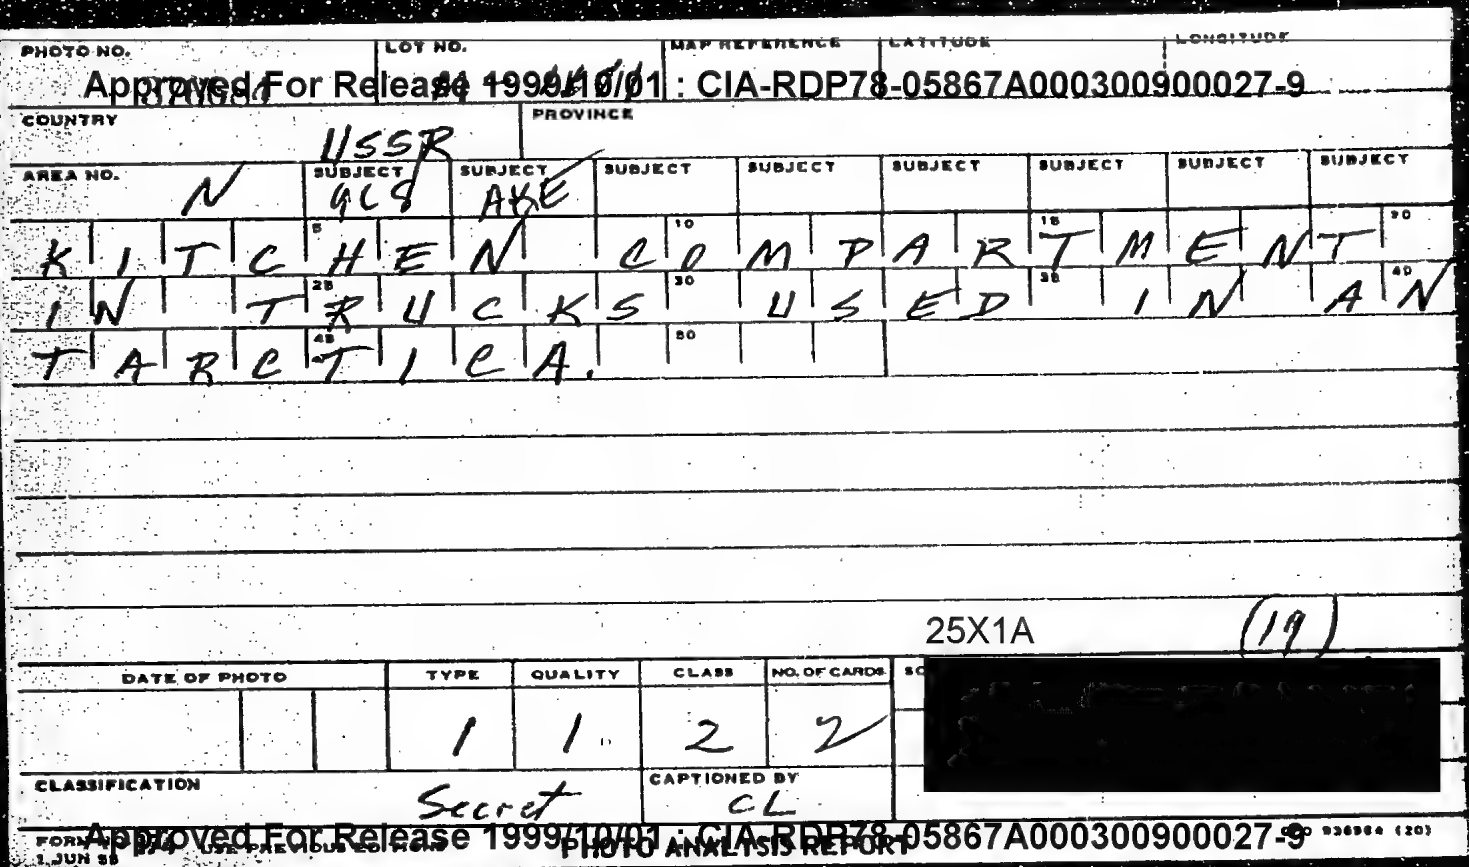 PHOTO NO. LOT NO. MAP REFERENCE LATITUDE LONGITUDE
Approved For Release 1999/10/01 : CIA-RDP78-05867A000300900027-9
COUNTRY USSR PROVINCE
AREA NO. N SUBJECT GC8 SUBJECT AKE SUBJECT SUBJECT SUBJECT SUBJECT SUBJECT SUBJECT
5 10 15 20
KITCHEN COMPARTMENT
25 30 35 40
IN TRUCKS USED IN AN
45 50
TARCTICA.
25X1A (19)
DATE OF PHOTO TYPE QUALITY CLASS NO. OF CARDS
1 1 2 2
CLASSIFICATION Secret CAPTIONED BY CL
Approved For Release 1999/10/01 : CIA-RDP78-05867A000300900027-9
FORM USE PREVIOUS EDITIONS PHOTO ANALYSIS REPORT 936984 (20)
1 JUN 58